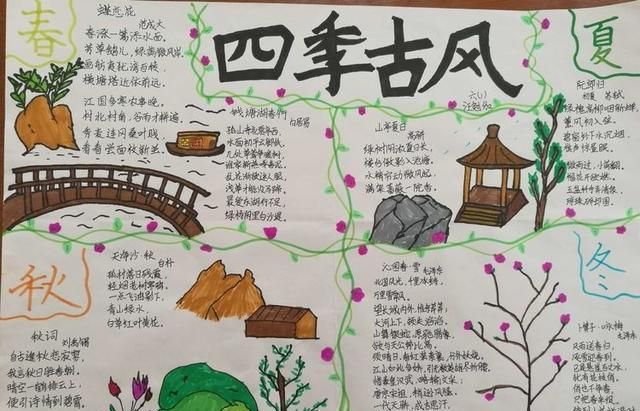 春
蝶恋花
范成大
春涨一篙添水面。
芳草鹅儿，绿满微风岸。
画舫夷犹湾百转。
横塘塔近依前远。
江国多寒农事晚。
村北村南，谷雨才耕遍。
秀麦连冈桑叶贱。
看看尝面收新茧。
四季古风
六(1)
钱塘湖春行
白居易
孤山寺北贾亭西，
水面初平云脚低。
几处早莺争暖树，
谁家新燕啄春泥。
乱花渐欲迷人眼，
浅草才能没马蹄。
最爱湖东行不足，
绿杨阴里白沙堤。
山亭夏日
高骈
绿树阴浓夏日长，
楼台倒影入池塘。
水精帘动微风起，
满架蔷薇一院香。
夏
阮郎归
初夏 苏轼
绿槐高柳咽新蝉，
薰风初入弦。
碧窗纱下水沉烟，
棋声惊昼眠。
微雨过，小荷翻，
榴花开欲然。
玉盆纤手弄清泉，
琼珠碎却圆。
秋
天净沙·秋
白朴
孤村落日残霞，
轻烟老树寒鸦，
一点飞鸿影下。
青山绿水，
白草红叶黄花。
秋词
刘禹锡
自古逢秋悲寂寥，
我言秋日胜春朝。
晴空一鹤排云上，
便引诗情到碧霄。
沁园春·雪
毛泽东
北国风光，千里冰封，
万里雪飘。
望长城内外，惟余莽莽；
大河上下，顿失滔滔。
山舞银蛇，原驰蜡象，
欲与天公势比高。
须晴日，看红装素裹，分外妖娆。
江山如此多娇，引无数英雄竞折腰。
惜秦皇汉武，略输文采；
唐宗宋祖，稍逊风骚。
一代天骄，成吉思汗，
冬
卜算子·咏梅
毛泽东
风雨送春归，
飞雪迎春到。
已是悬崖百丈冰，
犹有花枝俏。
俏也不争春，
只把春来报。